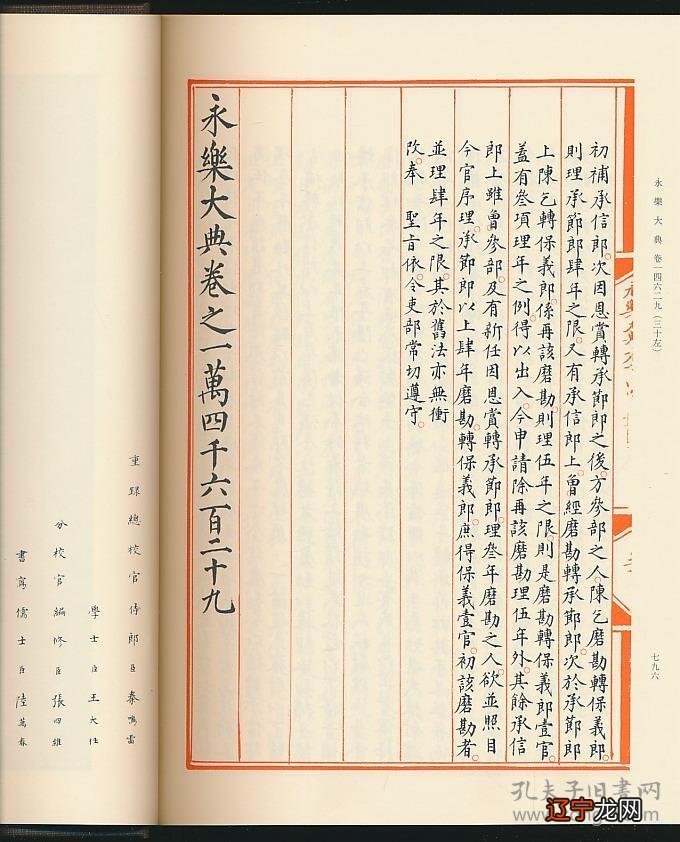 永樂大典 卷一四六二九(三十左)
七九六
初補承信郎。次因恩賞轉承節郎之後。方參部之人。陳乞磨勘轉保義郎。
則理承節郎肆年之限。又有承信郎上。曾經磨勘轉承節郎。次於承節郎
上陳乞轉保義郎。係再該磨勘。則理伍年之限。則是磨勘轉保義郎壹官。
蓋有叁項理年之例。得以出入。今申請除再該磨勘理伍年外。其餘承信
郎上雖曾參部。及有新任因恩賞轉承節郎。理叁年磨勘之人。欲並照目
今官序理。承節郎以上肆年磨勘。轉保義郎。庶得保義壹官。初該磨勘者。
並理肆年之限。其於舊法亦無衝
改。奉 聖旨依。令吏部常切遵守。
永樂大典卷之一萬四千六百二十九
重録總校官侍郎臣秦鳴雷
學士臣王大任
分校官編修臣張四維
書寫儒士臣陸萬春
孔夫子旧書网
辽宁龙网